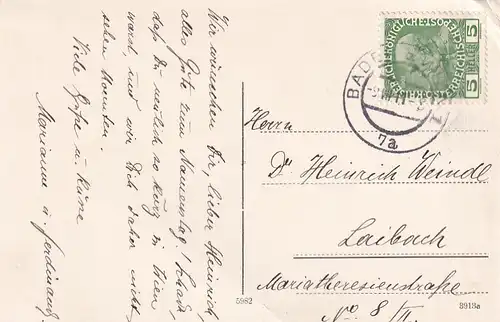 Wir wünschen Dir, lieber Heinrich,
alles Gute zum Namenstag! Schade,
daß Du neulich so kurz in Wien
warst, und wir Dich daher nicht
sehen konnten.
Viele Grüße u. Küsse
Marianne u. Ferdinand.
KAISERLICHE KÖNIGLICHE ÖSTERREICHISCHE POST
5 HELLER 5
BADEN
7a
Herrn
Dr Heinrich Weindl
Laibach
Mariatheresienstraße
No. 8/II.
5962
8913a